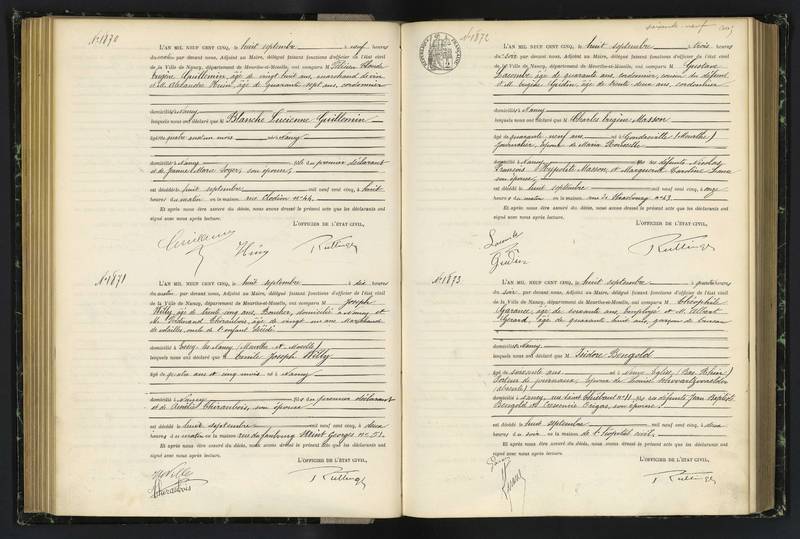 N° 1870
L'AN MIL NEUF CENT CINQ, le huit septembre à neuf heures
du matin par devant nous, Adjoint au Maire, délégué faisant fonctions d'officier de l'état civil
de la Ville de Nancy, département de Meurthe-et-Moselle, ont comparu M.
Eugène Guillemin, âgé de vingt huit ans, marchand de vin
et M. Alexandre âgé de quarante sept ans, cordonnier
domiciliés à Nancy
lesquels nous ont déclaré que M Blanche Lucienne Guillemin
âgée de quatre ans un mois née à Nancy
domiciliée à Nancy fille du premier déclarant
et de Jeanne Marie son épouse,
est décédée le huit septembre mil neuf cent cinq, à huit
heures du matin en la maison rue Clodion n° 44.
Et après nous être assuré du décès, nous avons dressé le présent acte que les déclarants ont
signé avec nous après lecture.
L'OFFICIER DE L'ÉTAT CIVIL,
Guillemin
N° 1871
L'AN MIL NEUF CENT CINQ, le huit septembre à dix heures
du matin par devant nous, Adjoint au Maire, délégué faisant fonctions d'officier de l'état civil
de la Ville de Nancy, département de Meurthe-et-Moselle, ont comparu M. Joseph
Willy, âgé de trente cinq ans, domicilié à Nancy et
M. âgé de vingt un ans Marchand
de volailles, oncle de l'enfant
domicilié à (Meurthe et Moselle)
lesquels nous ont déclaré que Emile Joseph Willy
âgé de ans et cinq mois né à Nancy
domicilié à Nancy fils du premier déclarant
et de son épouse
est décédé le huit septembre mil neuf cent cinq, à deux
heures du matin en la maison rue du faubourg Saint Georges n° 51.
Et après nous être assuré du décès, nous avons dressé le présent acte que les déclarants ont
signé avec nous après lecture.
L'OFFICIER DE L'ÉTAT CIVIL,
soixante-neuf
N° 1872
L'AN MIL NEUF CENT CINQ, le huit septembre à trois heures
du soir par devant nous, Adjoint au Maire, délégué faisant fonctions d'officier de l'état civil
de la Ville de Nancy, département de Meurthe-et-Moselle, ont comparu M. Gustave
Lacombe âgé de quarante ans, cordonnier, cousin du défunt
et M. Eugène Guidin, âgé de trente deux ans, cordonnier
domiciliés à Nancy
lesquels nous ont déclaré que M Charles Eugène Masson
âgé de quarante neuf ans né à Gondreville (Meurthe)
journalier, époux de Maria
domicilié à Nancy fils des défunts Nicolas
François Hyppolite Masson, et Marguerite Caroline
son épouse,
est décédé le huit septembre mil neuf cent cinq, à onze
heures du matin en la maison rue de Strasbourg n° 63.
Et après nous être assuré du décès, nous avons dressé le présent acte que les déclarants ont
signé avec nous après lecture.
L'OFFICIER DE L'ÉTAT CIVIL,
Lacombe
Guidin
N° 1873
L'AN MIL NEUF CENT CINQ, le huit septembre à quatre heures
du soir par devant nous, Adjoint au Maire, délégué faisant fonctions d'officier de l'état civil
de la Ville de Nancy, département de Meurthe-et-Moselle, ont comparu M. Théophile
Garance, âgé de soixante ans, employé et M. Albert
Gérard, âgé de quarante huit ans, garçon de bureau
domiciliés à Nancy
lesquels nous ont déclaré que M. Isidore Bengold
âgé de soixante ans né à (Bas Rhin)
Porteur de journaux, époux de Louise
domicilié à Nancy, rue Saint Thiébaut n° 11, fils des défunts Jean Baptiste
Bengold et son épouse,
est décédé le huit septembre mil neuf cent cinq, à deux
heures du soir en la maison de l'hôpital civil.
Et après nous être assuré du décès, nous avons dressé le présent acte que les déclarants ont
signé avec nous après lecture.
L'OFFICIER DE L'ÉTAT CIVIL,